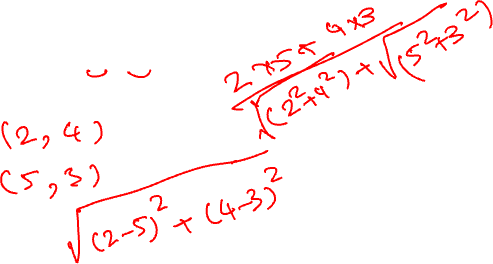 2*5+4*3
√(2²+4²) + √(5²+3²)
(2,4)
(5,3)
√(2-5)² + (4-3)²